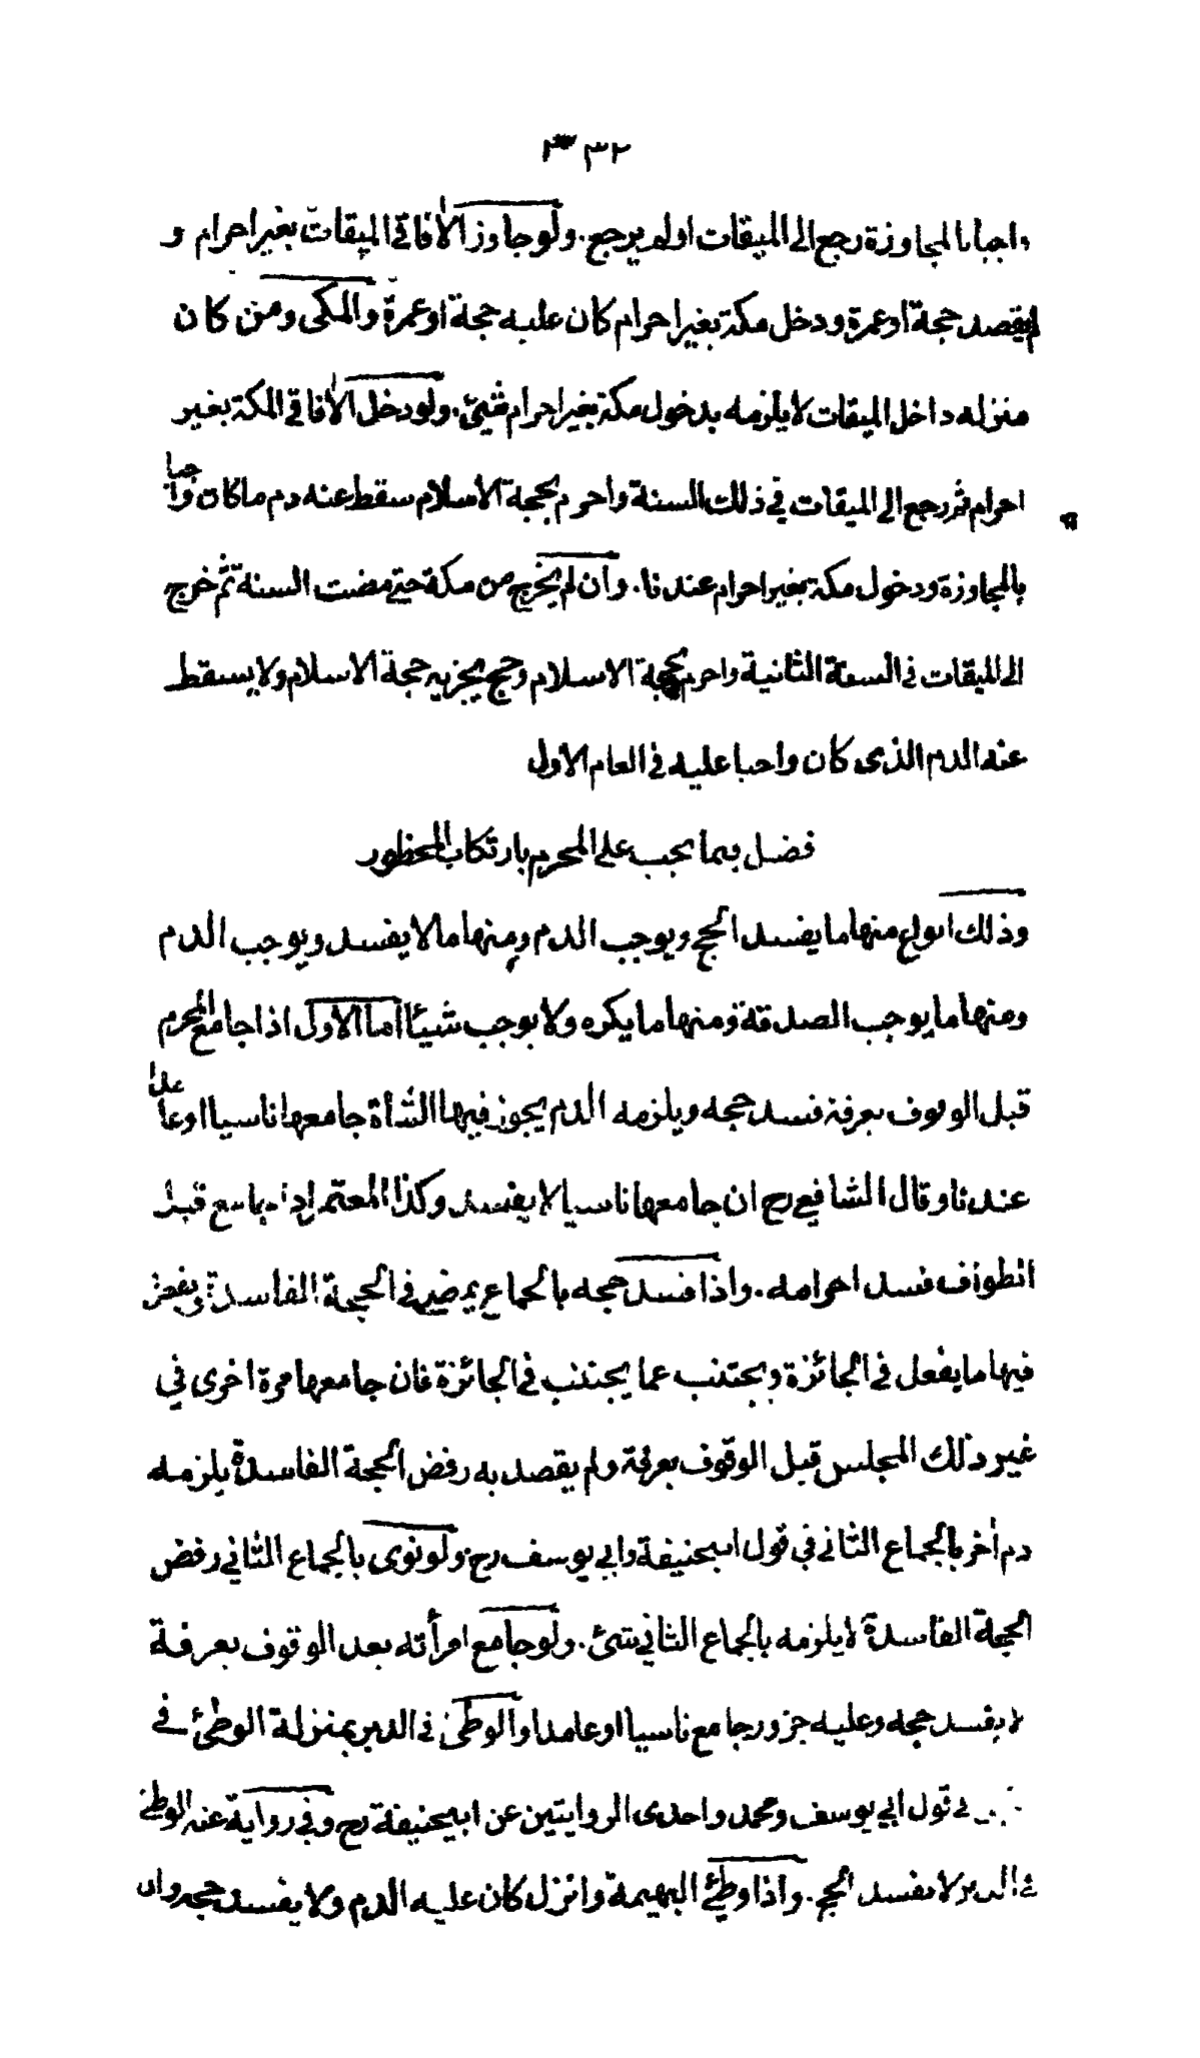 ٣٣٢
واجبا بالمجاوزة رجع الى الميقات اولم يرجع. ولو جاوز الآفاقي الميقات بغير احرام و
لم يقصد حجة او عمرة ودخل مكة بغير احرام كان عليه حجة او عمرة والمكى ومن كان
منزله داخل الميقات لا يلزمه بدخول مكة بغير احرام شيئ. ولو دخل الآفاقي المكة بغير
احرام ثم رجع الى الميقات في ذلك السنة واحرم بحجة الاسلام سقط عنه دم ما كان واجبا
بالمجاوزة ودخول مكة بغير احرام عندنا. وان لم يخرج من مكة حتى مضت السنة ثم خرج
الى الميقات في السنة الثانية واحرم بحجة الاسلام وحج يجزيه حجة الاسلام ولا يسقط
عنه الدم الذى كان واجبا عليه في العام الاول
فصل فيما يجب على المحرم بارتكاب المحظور
وذلك انواع منها ما يفسد الحج ويوجب الدم ومنها ما لا يفسد ويوجب الدم
ومنها ما يوجب الصدقة ومنها ما يكره ولا يوجب شيئا اما الاول اذا جامع المحرم
قبل الوقوف بعرفة فسد حجه ويلزمه الدم يجوز فيها الشأة جامعها ناسيا او عامدا
عندنا وقال الشافعي رح ان جامعها ناسيا لا يفسد وكذا المعتمر اذا جامع قبل
الطواف فسد احرامه. واذا فسد حجه بالجماع يمضي في الحجة الفاسدة ويفعل
فيها ما يفعل في الجائزة ويجتنب عما يجتنب في الجائزة فان جامعها مرة اخرى في
غير ذلك المجلس قبل الوقوف بعرفة ولم يقصد به رفض الحجة الفاسدة يلزمه
دم آخر بالجماع الثاني في قول ابيحنيفة وابي يوسف رح ولو نوى بالجماع الثاني رفض
الحجة الفاسدة لا يلزمه بالجماع الثاني شئ. ولو جامع امرأته بعد الوقوف بعرفة
لا يفسد حجه وعليه جزور جامع ناسيا او عامدا والوطئ في الدبر بمنزلة الوطئ في
في قول ابي يوسف ومحمد واحدى الروايتين عن ابيحنيفة رح وفي رواية عنه الوطئ
في الدبر لا يفسد الحج. واذا وطئ البهيمة وانزل كان عليه الدم ولا يفسد حجه وان